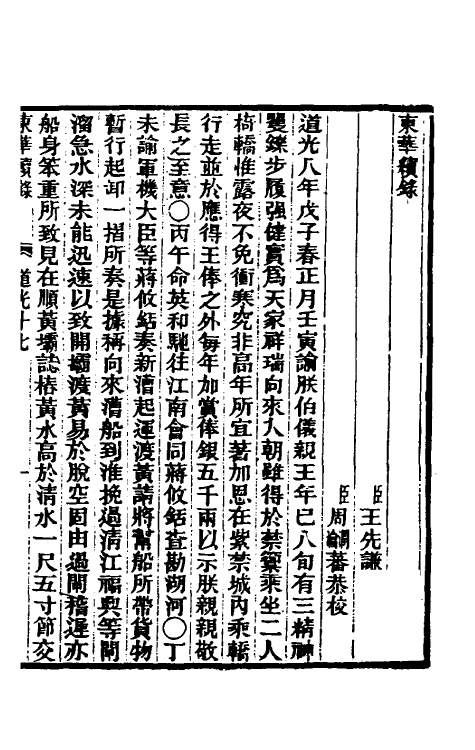 東華續錄
臣王先謙
臣周瀹蕃恭校
道光八年戊子春正月壬寅諭朕伯儀親王年已八旬有三精神
矍鑠步履强健實為天家祥瑞向來入朝雖得於禁籞乘坐二人
椅轎惟露夜不免衝寒究非高年所宜著加恩在紫禁城內乘轎
行走並於應得王俸之外每年加賞俸銀五千兩以示朕親親敬
長之至意〇丙午命英和馳往江南會同蔣攸銛查勘湖河〇丁
未諭軍機大臣等蔣攸銛奏新漕起運渡黃請將幫船所帶貨物
暫行起卸一摺所奏是據稱向來漕船到淮挽過清江福興等閘
溜急水深未能迅速以致開壩渡黃易於脫空固由過閘稽遲亦
船身笨重所致見在順黃壩誌樁黃水高於清水一尺五寸節交
東華續錄 道光十七 一